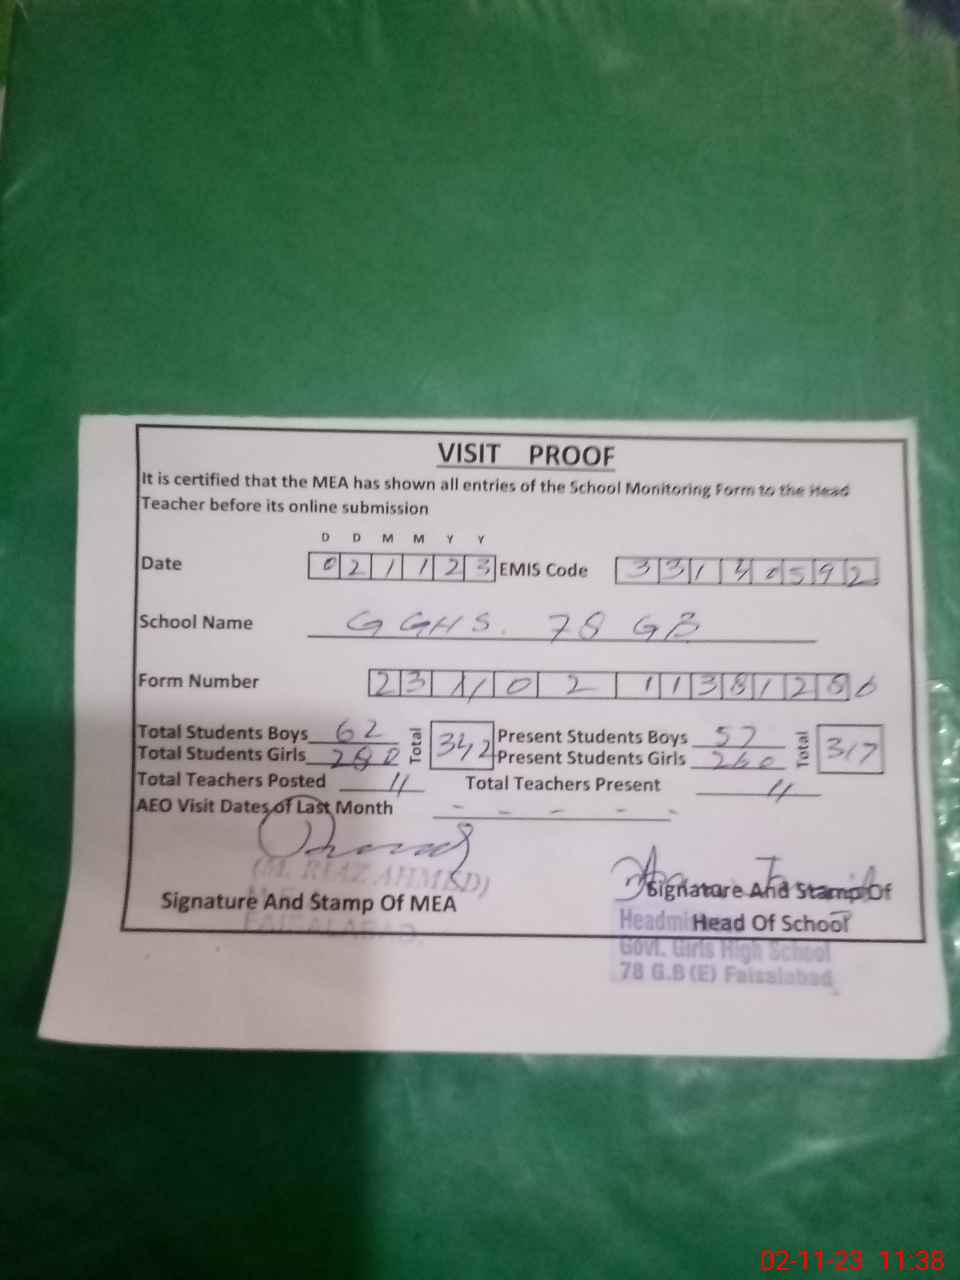 VISIT PROOF
It is certified that the MEA has shown all entries of the School Monitoring Form to the Head
Teacher before its online submission
D D M M Y Y
Date 0 2 1 1 2 3 EMIS Code 3 3 1 4 0 5 9 2
School Name GGHS. 78 GB
Form Number
Total Students Boys 62 Total 342 Present Students Boys 57 Total 317
Total Students Girls 280 Present Students Girls 260
Total Teachers Posted 11 Total Teachers Present 11
AEO Visit Dates of Last Month - - - - -
(M. RIAZ AHMED)
Signature And Stamp Of MEA Signature And Stamp Of
FAISALABAD. Head Of School
Govt. Girls High School
78 G.B (E) Faisalabad
02-11-23 11:38